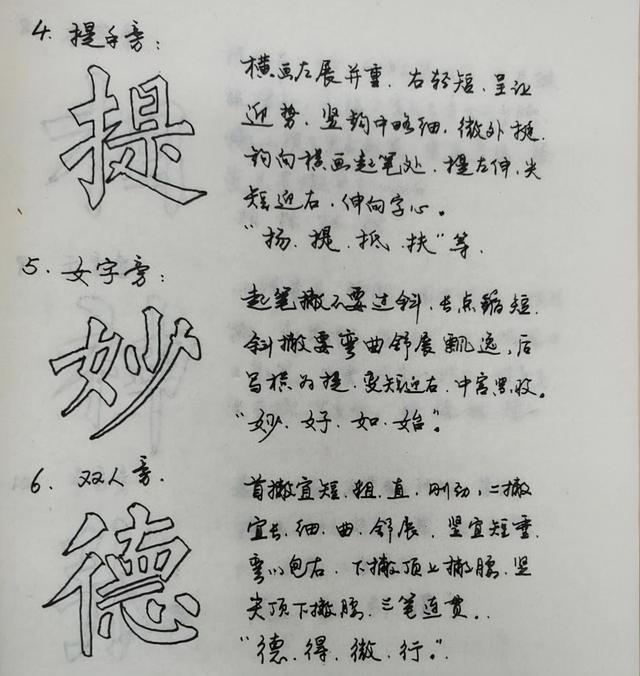 4. 提手旁：
提
横画左展并重．右轻短．呈让
迎势．竖钩中略细．微外挺．
钩向横画起笔处．提左伸．尖
短迎右．伸向字心。
“扬．提．抵．扶”等．
5. 女字旁：
妙
起笔撇不要过斜．长点缩短．
斜撇要弯曲舒展飘逸，后
写横为提．变短迎右．中宫紧收。
“妙．好．如．始”。
6. 双人旁．
德
首撇宜短．粗．直．刚劲，二撇
宜长．细．曲．舒展．竖宜短重．
弯以包右．下撇顶上撇腰．竖
尖顶下撇腰．三笔连贯．．
“德．得．微．行”．